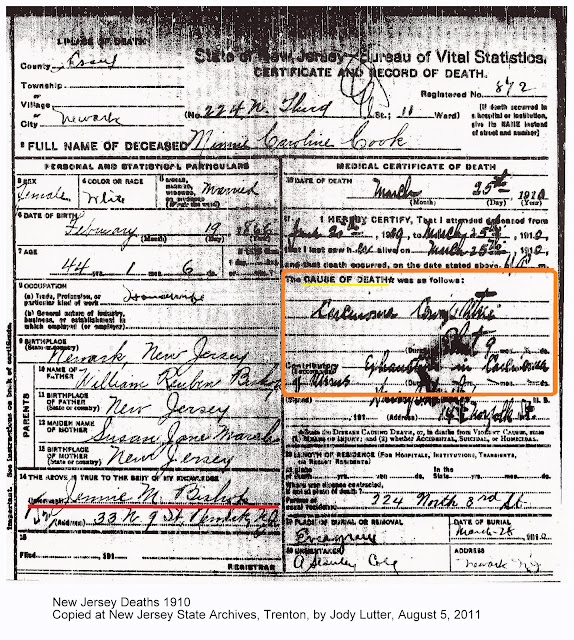 1 PLACE OF DEATH
State of New Jersey—Bureau of Vital Statistics.
County Essex
CERTIFICATE AND RECORD OF DEATH.
Township
Registered No. 872
or
Village
or
City Newark
(No. 224 N. Third St.; 11 Ward)
(If death occurred in a hospital or institution, give its NAME instead of street and number)
2 FULL NAME OF DECEASED Minnie Caroline Cook
PERSONAL AND STATISTICAL PARTICULARS
3 SEX
female
4 COLOR OR RACE
White
5 SINGLE, MARRIED, WIDOWED, OR DIVORCED
Married
6 DATE OF BIRTH
February 19 1866
(Month) (Day)
7 AGE
44 yrs. 1 mos. 6 ds.
8 OCCUPATION
(a) Trade, Profession, or particular kind of work Housewife
(b) General nature of Industry, business, or establishment in which employed (or employer)
9 BIRTHPLACE
(State or country)
Newark, New Jersey
PARENTS
10 NAME OF FATHER
William Reuben Bishop
11 BIRTHPLACE OF FATHER
(State or country)
New Jersey
12 MAIDEN NAME OF MOTHER
Susan Jane Marsh
13 BIRTHPLACE OF MOTHER
(State or country)
New Jersey
14 THE ABOVE IS TRUE TO THE BEST OF MY KNOWLEDGE
(Informant) Jennie M. Bishop
(Address) 33 N 9 St. Newark NJ
15
Filed 191
REGISTRAR
Important. See instructions on back of certificate.
MEDICAL CERTIFICATE OF DEATH
16 DATE OF DEATH
March 25th 1910
(Month) (Day) (Year)
17 I HEREBY CERTIFY, That I attended deceased from
to March 25th, 1910
that I last saw her alive on March 25th, 1910
and that death occurred, on the date stated above, m.
The CAUSE OF DEATH was as follows:
Carcinoma
Contributory Exhaustion in Carcinoma
of Uterus
(Signed) M. D.
191 (Address) 14 Norfolk St
State the DISEASE CAUSING DEATH, or, in deaths from VIOLENT CAUSES, state (1) MEANS OF INJURY; and (2) whether ACCIDENTAL, SUICIDAL, or HOMICIDAL.
18 LENGTH OF RESIDENCE (FOR HOSPITALS, INSTITUTIONS, TRANSIENTS, OR RECENT RESIDENTS)
Where was disease contracted, if not at place of death?
Former or usual residence 224 North 3rd St.
19 PLACE OF BURIAL OR REMOVAL
Evergreen
DATE OF BURIAL
March 28 1910
20 UNDERTAKER
A Stanley
ADDRESS
Newark N.J.
New Jersey Deaths 1910
Copied at New Jersey State Archives, Trenton, by Jody Lutter, August 5, 2011